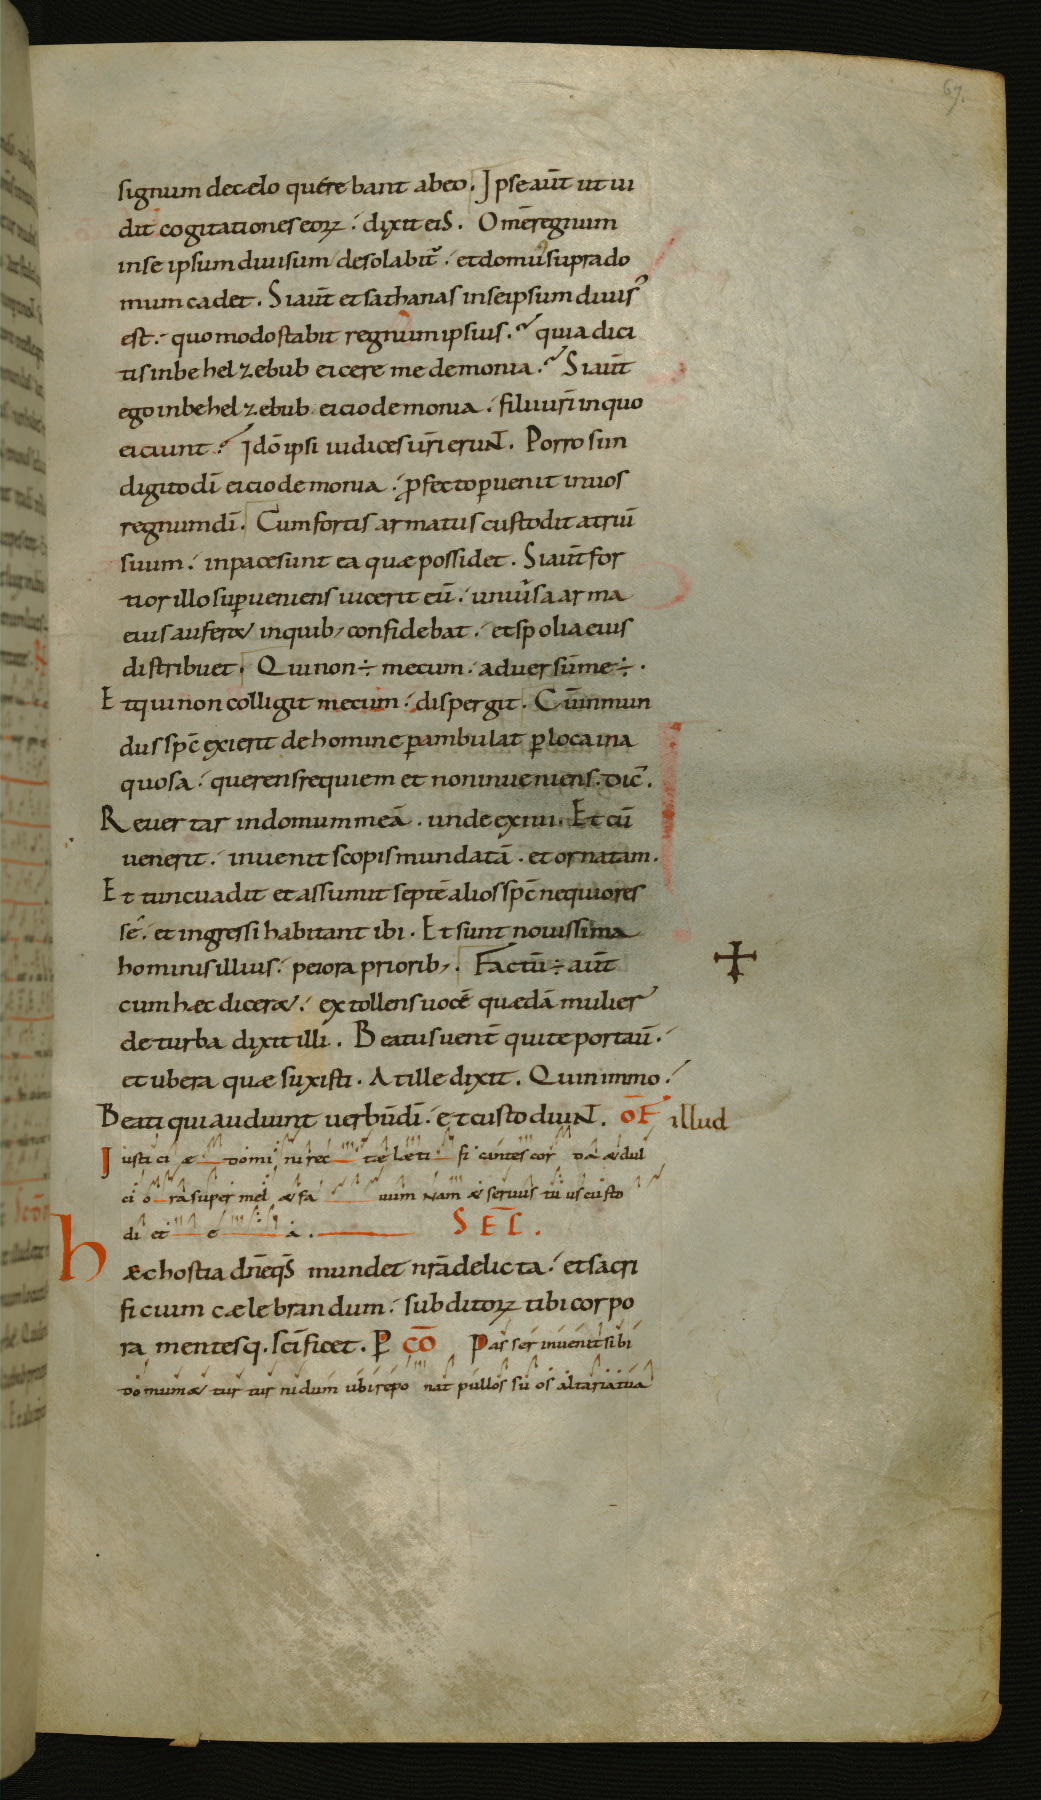 67.
signum decaelo quęrebant abeo. Ipse aut̄ ut ui
dit cogitationes eoꝝ. dixit eis. Om̄e regnum
inse ipsum diuisum desolabit᷑. et domus supra do
mum cadet. Si aut̄ et sathanas inse ipsum diuisꝰ
est. quomodo stabit regnum ipsius. quia dici
tis in behelzebub eicere me demonia. Si aut̄
ego in behelzebub eicio demonia. filii uri̅ in quo
eiciunt. Ido̅ ipsi iudices uri̅ erunt. Porro si in
digito di̅ eicio demonia. ꝓfecto ꝑuenit in uos
regnum di̅. Cum fortis armatus custodit atriu̅
suum. in pace sunt ea quae possidet. Si aut̄ for
tior illo suꝑueniens uicerit eu̅. uniu᷑sa arma
eius auferet in quib; confidebat. et spolia eius
distribuet. Qui non ÷ mecum. aduersu̅ me ÷.
Et qui non colligit mecum. dispergit. Cu̅ inmun
dus spc̅ exierit de homine ꝑambulat ꝑ loca ina
quosa. querens requiem et non inueniens. dic̅.
Reuertar in domum mea̅. unde exiui. Et cu̅
uenerit. inuenit scopis mundata̅. et ornatam.
Et tunc uadit et assumit septe̅ alios spc̅ nequiores
se̅. et ingressi habitant ibi. Et sunt nouissima
hominis illius. peiora priorib;. Factu̅ ÷ aut̄
cum haec diceret. extollens uoce̅ quaeda̅ mulier
de turba dixit illi. Beatus uent̅ qui te portau̅.
et ubera quae suxisti. At ille dixit. Quinimmo.
Beati qui audiunt uerbu̅ di̅. et custodiunt. OF̅ illud
Iusticiae domini rectae laetificantes corda et dul
ciora super mel et fauum Nam et seruus tuus custo
diet ea. SE̅C.
Haec hostia dn̅e qs̅ mundet nr̅a delicta. et sacri
ficium caelebrandum. subditoꝝ tibi corpo
ra mentesq. sci̅ficet. P̲ CO̅ Passer inuenit sibi
domum et turtur nidum ubi reponat pullos suos altaria tua